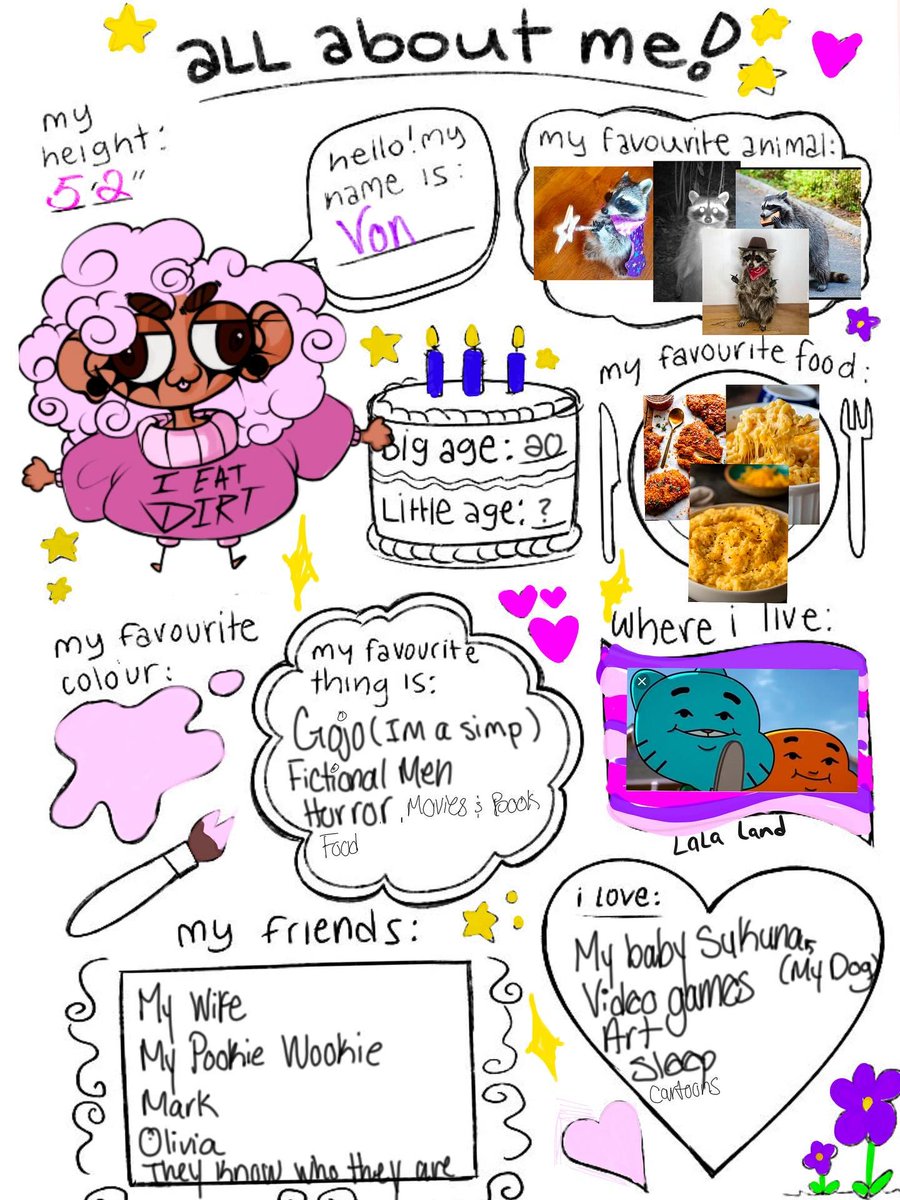 all about me!
my
height:
5'2"
hello! my
name is:
Von
my favourite animal:
I EAT
DIRT
Big age: 20
Little age: ?
my favourite food:
my favourite
colour:
my favourite
thing is:
Gojo (Im a simp)
Fictional Men
Horror, Movies & Book
Food
where i live:
LaLa Land
my friends:
My Wife
My Pookie Wookie
Mark
Olivia
They know who they are
i love:
My baby Sukuna,
(My Dog)
Video games
Art
Sleep
Cartoons